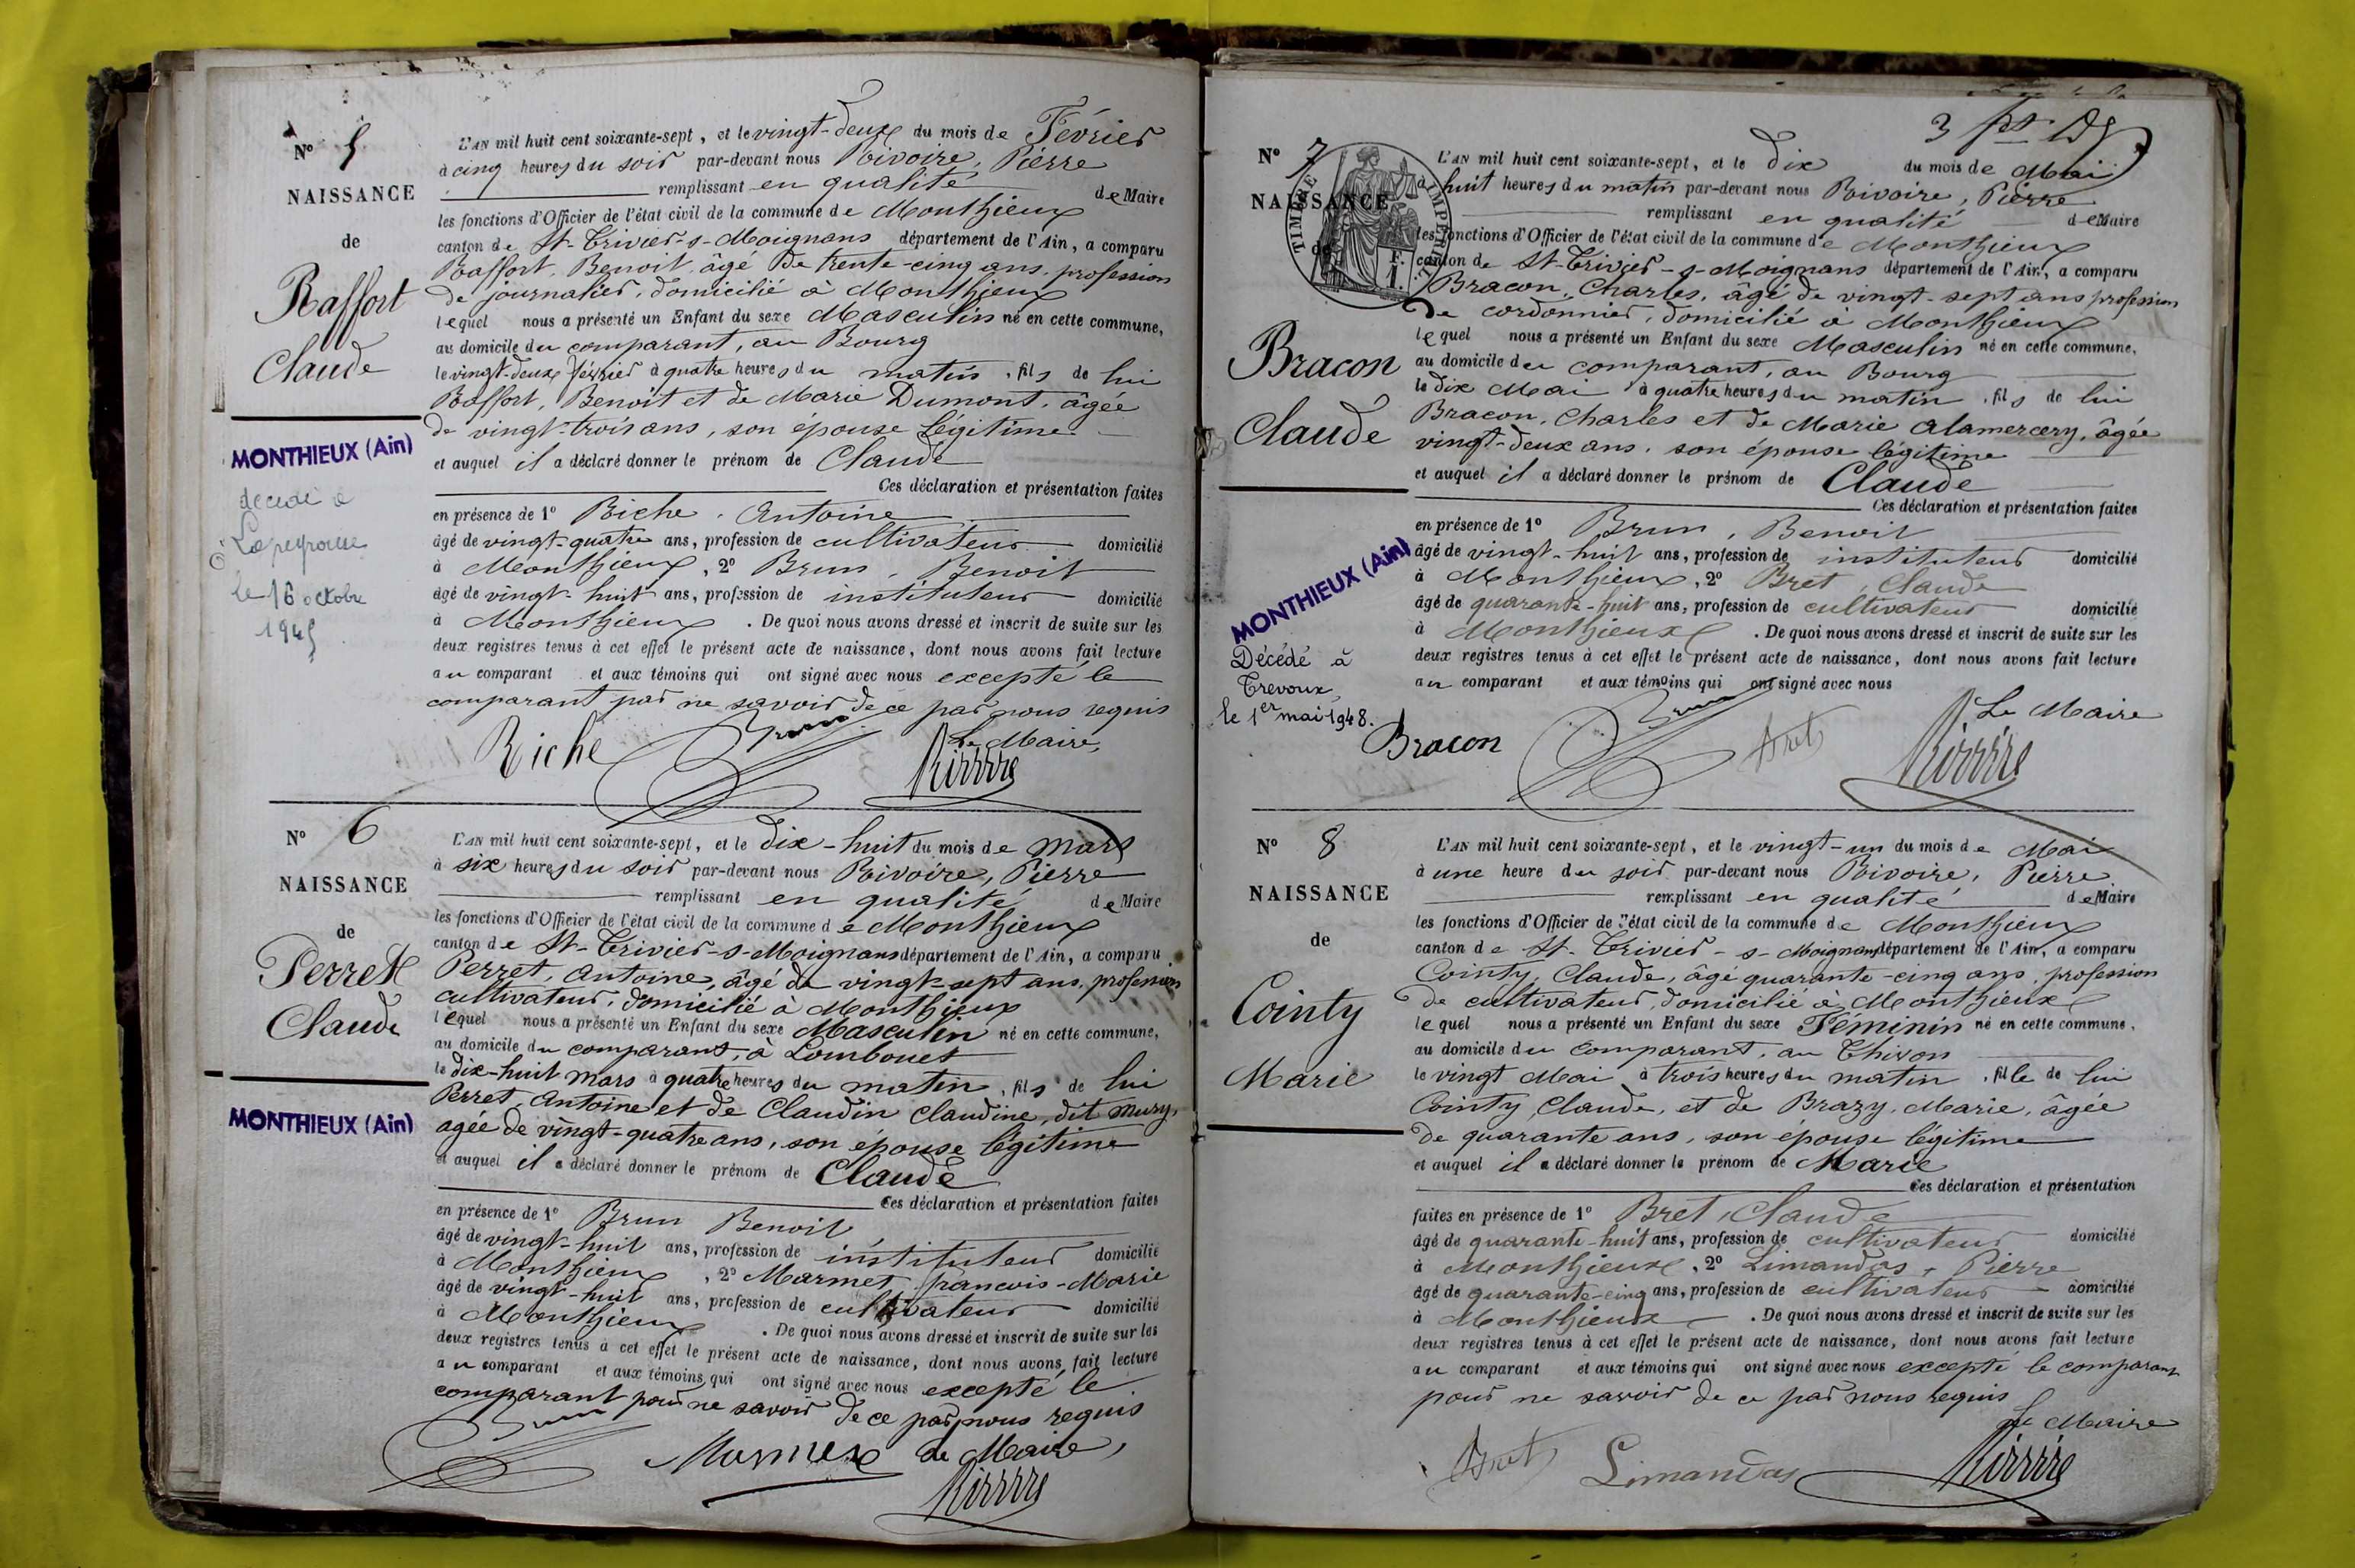 N° 5
NAISSANCE
de
Raffort
Claude
MONTHIEUX (Ain)
décédé à
Lapeyrouse
le 16 octobre
1945
L'AN mil huit cent soixante-sept, et le vingt-deux du mois de Février
à cinq heures du soir par-devant nous Poivoire, Pierre
remplissant en qualité de Maire
les fonctions d'Officier de l'état civil de la commune de Monthieux
canton de St-Trivier-s-Moignans département de l'Ain, a comparu
Raffort, Benoit, âgé de trente-cinq ans, profession
de journalier, domicilié à Monthieux
lequel nous a présenté un Enfant du sexe Masculin né en cette commune,
au domicile du comparant, au Bourg
le vingt-deux février à quatre heures du matin, fils de lui
Raffort, Benoit et de Marie Dumont, âgée
de vingt-trois ans, son épouse légitime
et auquel il a déclaré donner le prénom de Claude
Ces déclaration et présentation faites
en présence de 1° Riche, Antoine
âgé de vingt-quatre ans, profession de cultivateur domicilié
à Monthieux, 2° Brun, Benoit
âgé de vingt-huit ans, profession de instituteur domicilié
à Monthieux. De quoi nous avons dressé et inscrit de suite sur les
deux registres tenus à cet effet le présent acte de naissance, dont nous avons fait lecture
au comparant et aux témoins qui ont signé avec nous excepté le
comparant pour ne savoir de ce par nous requis
Riche Brun Le Maire,
Poivoire
N° 6
NAISSANCE
de
Perret
Claude
MONTHIEUX (Ain)
L'AN mil huit cent soixante-sept, et le dix-huit du mois de Mars
à six heures du soir par-devant nous Poivoire, Pierre
remplissant en qualité de Maire
les fonctions d'Officier de l'état civil de la commune de Monthieux
canton de St-Trivier-s-Moignans département de l'Ain, a comparu
Perret, Antoine, âgé de vingt-sept ans, profession
cultivateur, domicilié à Monthieux
lequel nous a présenté un Enfant du sexe Masculin né en cette commune,
au domicile du comparant, à Lombouet
le dix-huit mars à quatre heures du matin, fils de lui
Perret, Antoine et de Claudin Claudine, dit Mury,
agée de vingt-quatre ans, son épouse légitime
et auquel il a déclaré donner le prénom de Claude
Ces déclaration et présentation faites
en présence de 1° Brun Benoit,
âgé de vingt-huit ans, profession de instituteur domicilié
à Monthieux, 2° Marmet, francois-Marie
âgé de vingt-huit ans, profession de cultivateur domicilié
à Monthieux. De quoi nous avons dressé et inscrit de suite sur les
deux registres tenus à cet effet le présent acte de naissance, dont nous avons fait lecture
au comparant et aux témoins qui ont signé avec nous excepté le
comparant pour ne savoir de ce par nous requis
Brun Marmet Le Maire,
Poivoire
N° 7
NAISSANCE
de
TIMBRE IMPÉRIAL
Bracon
Claude
MONTHIEUX (Ain)
Décédé à
Trevoux,
le 1er mai 1948.
L'AN mil huit cent soixante-sept, et le dix du mois de Mai
à huit heures du matin par-devant nous Poivoire, Pierre
remplissant en qualité de Maire
les fonctions d'Officier de l'état civil de la commune de Monthieux
canton de St-Trivier-s-Moignans département de l'Ain, a comparu
Bracon, Charles, âgé de vingt-sept ans profession
de cordonnier, domicilié à Monthieux
lequel nous a présenté un Enfant du sexe Masculin né en cette commune,
au domicile du comparant, au Bourg
le dix Mai à quatre heures du matin, fils de lui
Bracon, Charles et de Marie Alamercery, âgée
vingt-deux ans, son épouse légitime
et auquel il a déclaré donner le prénom de Claude
Ces déclaration et présentation faites
en présence de 1° Brun, Benoit
âgé de vingt-huit ans, profession de instituteur domicilié
à Monthieux, 2° Bret, Claude
âgé de quarante-huit ans, profession de cultivateur domicilié
à Monthieux. De quoi nous avons dressé et inscrit de suite sur les
deux registres tenus à cet effet le présent acte de naissance, dont nous avons fait lecture
au comparant et aux témoins qui ont signé avec nous
Le Maire
Bracon Brun Bret Poivoire
N° 8
NAISSANCE
de
Cointy
Marie
L'AN mil huit cent soixante-sept, et le vingt-un du mois de Mai
à une heure du soir par-devant nous Poivoire, Pierre
remplissant en qualité de Maire
les fonctions d'Officier de l'état civil de la commune de Monthieux
canton de St-Trivier-s-Moignans département de l'Ain, a comparu
Cointy, Claude, âgé quarante-cinq ans, profession
de cultivateur, domicilié à Monthieux
lequel nous a présenté un Enfant du sexe Féminin né en cette commune,
au domicile du comparant, au Thivon
le vingt Mai à trois heures du matin, fille de lui
Cointy, Claude, et de Brazy, Marie, âgée
de quarante ans, son épouse légitime
et auquel il a déclaré donner le prénom de Marie
Ces déclaration et présentation
faites en présence de 1° Bret, Claude
âgé de quarante-huit ans, profession de cultivateur domicilié
à Monthieux, 2° Limandas, Pierre
âgé de quarante-cinq ans, profession de cultivateur domicilié
à Monthieux. De quoi nous avons dressé et inscrit de suite sur les
deux registres tenus à cet effet le présent acte de naissance, dont nous avons fait lecture
au comparant et aux témoins qui ont signé avec nous excepté le comparant
pour ne savoir de ce par nous requis
Le Maire
Bret Limandas Poivoire